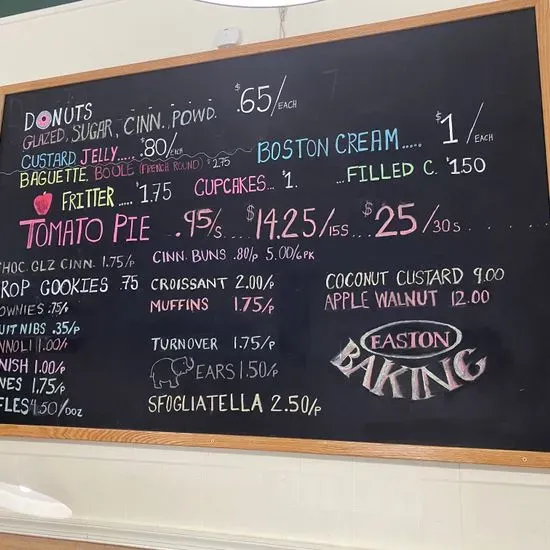 DONUTS
GLAZED, SUGAR, CINN. POWD. $.65/EACH
CUSTARD JELLY..... $.80/EACH
BOSTON CREAM..... $1/EACH
BAGUETTE, BOULE (FRENCH ROUND) $1.75
FRITTER ..... $1.75 CUPCAKES... $1. ...FILLED C. $1.50
TOMATO PIE .95/S. $14.25/15S... $25/30S
HOC. GLZ CINN. 1.75/P
CINN. BUNS .80/P 5.00/6PK
ROP COOKIES .75
CROISSANT 2.00/P
COCONUT CUSTARD 9.00
OWNIES .75/P
MUFFINS 1.75/P
APPLE WALNUT 12.00
UIT NIBS .35/P
NNOLI 1.00/P
TURNOVER 1.75/P
EASTON
BAKING
NISH 1.00/P
EARS 1.50/P
NES 1.75/P
FLES 4.50/DOZ
SFOGLIATELLA 2.50/P